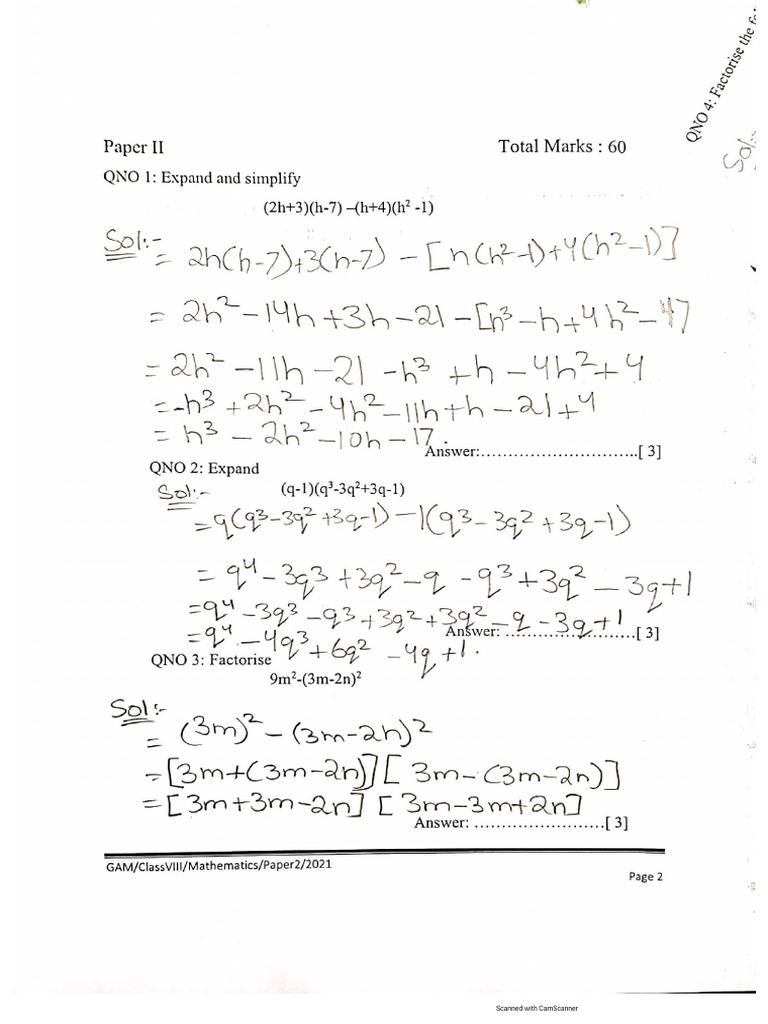 QNO 4: Factorise the
Sol:-
Paper II Total Marks : 60
QNO 1: Expand and simplify
(2h+3)(h-7) –(h+4)(h² -1)
Sol:- = 2h(h-7)+3(h-7) - [h(h²-1)+4(h²-1)]
= 2h²-14h+3h-21-[h³-h+4h²-4]
= 2h²-11h-21-h³+h-4h²+4
= -h³+2h²-4h²-11h+h-21+4
= h³-2h²-10h-17.
Answer:.............................[ 3]
QNO 2: Expand
Sol:- (q-1)(q³-3q²+3q-1)
= q(q³-3q²+3q-1)-1(q³-3q²+3q-1)
= q⁴-3q³+3q²-q-q³+3q²-3q+1
= q⁴-3q³-q³+3q²+3q²-q-3q+1
Answer: ........................[ 3]
= q⁴-4q³+6q²-4q+1.
QNO 3: Factorise
9m²-(3m-2n)²
Sol:- = (3m)²-(3m-2n)²
= [3m+(3m-2n)][3m-(3m-2n)]
= [3m+3m-2n][3m-3m+2n]
Answer: ........................[ 3]
GAM/ClassVIII/Mathematics/Paper2/2021
Page 2
Scanned with CamScanner